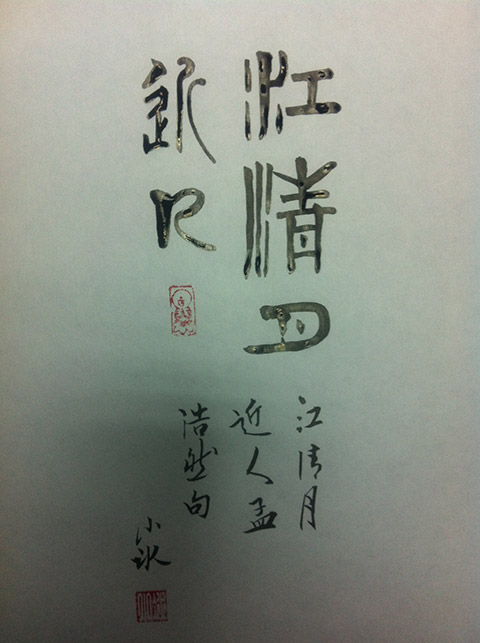 江清月
近人
江清月
近人孟
浩然句
小